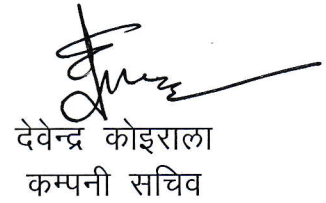 देवेन्द्र कोइराला
कम्पनी सचिव